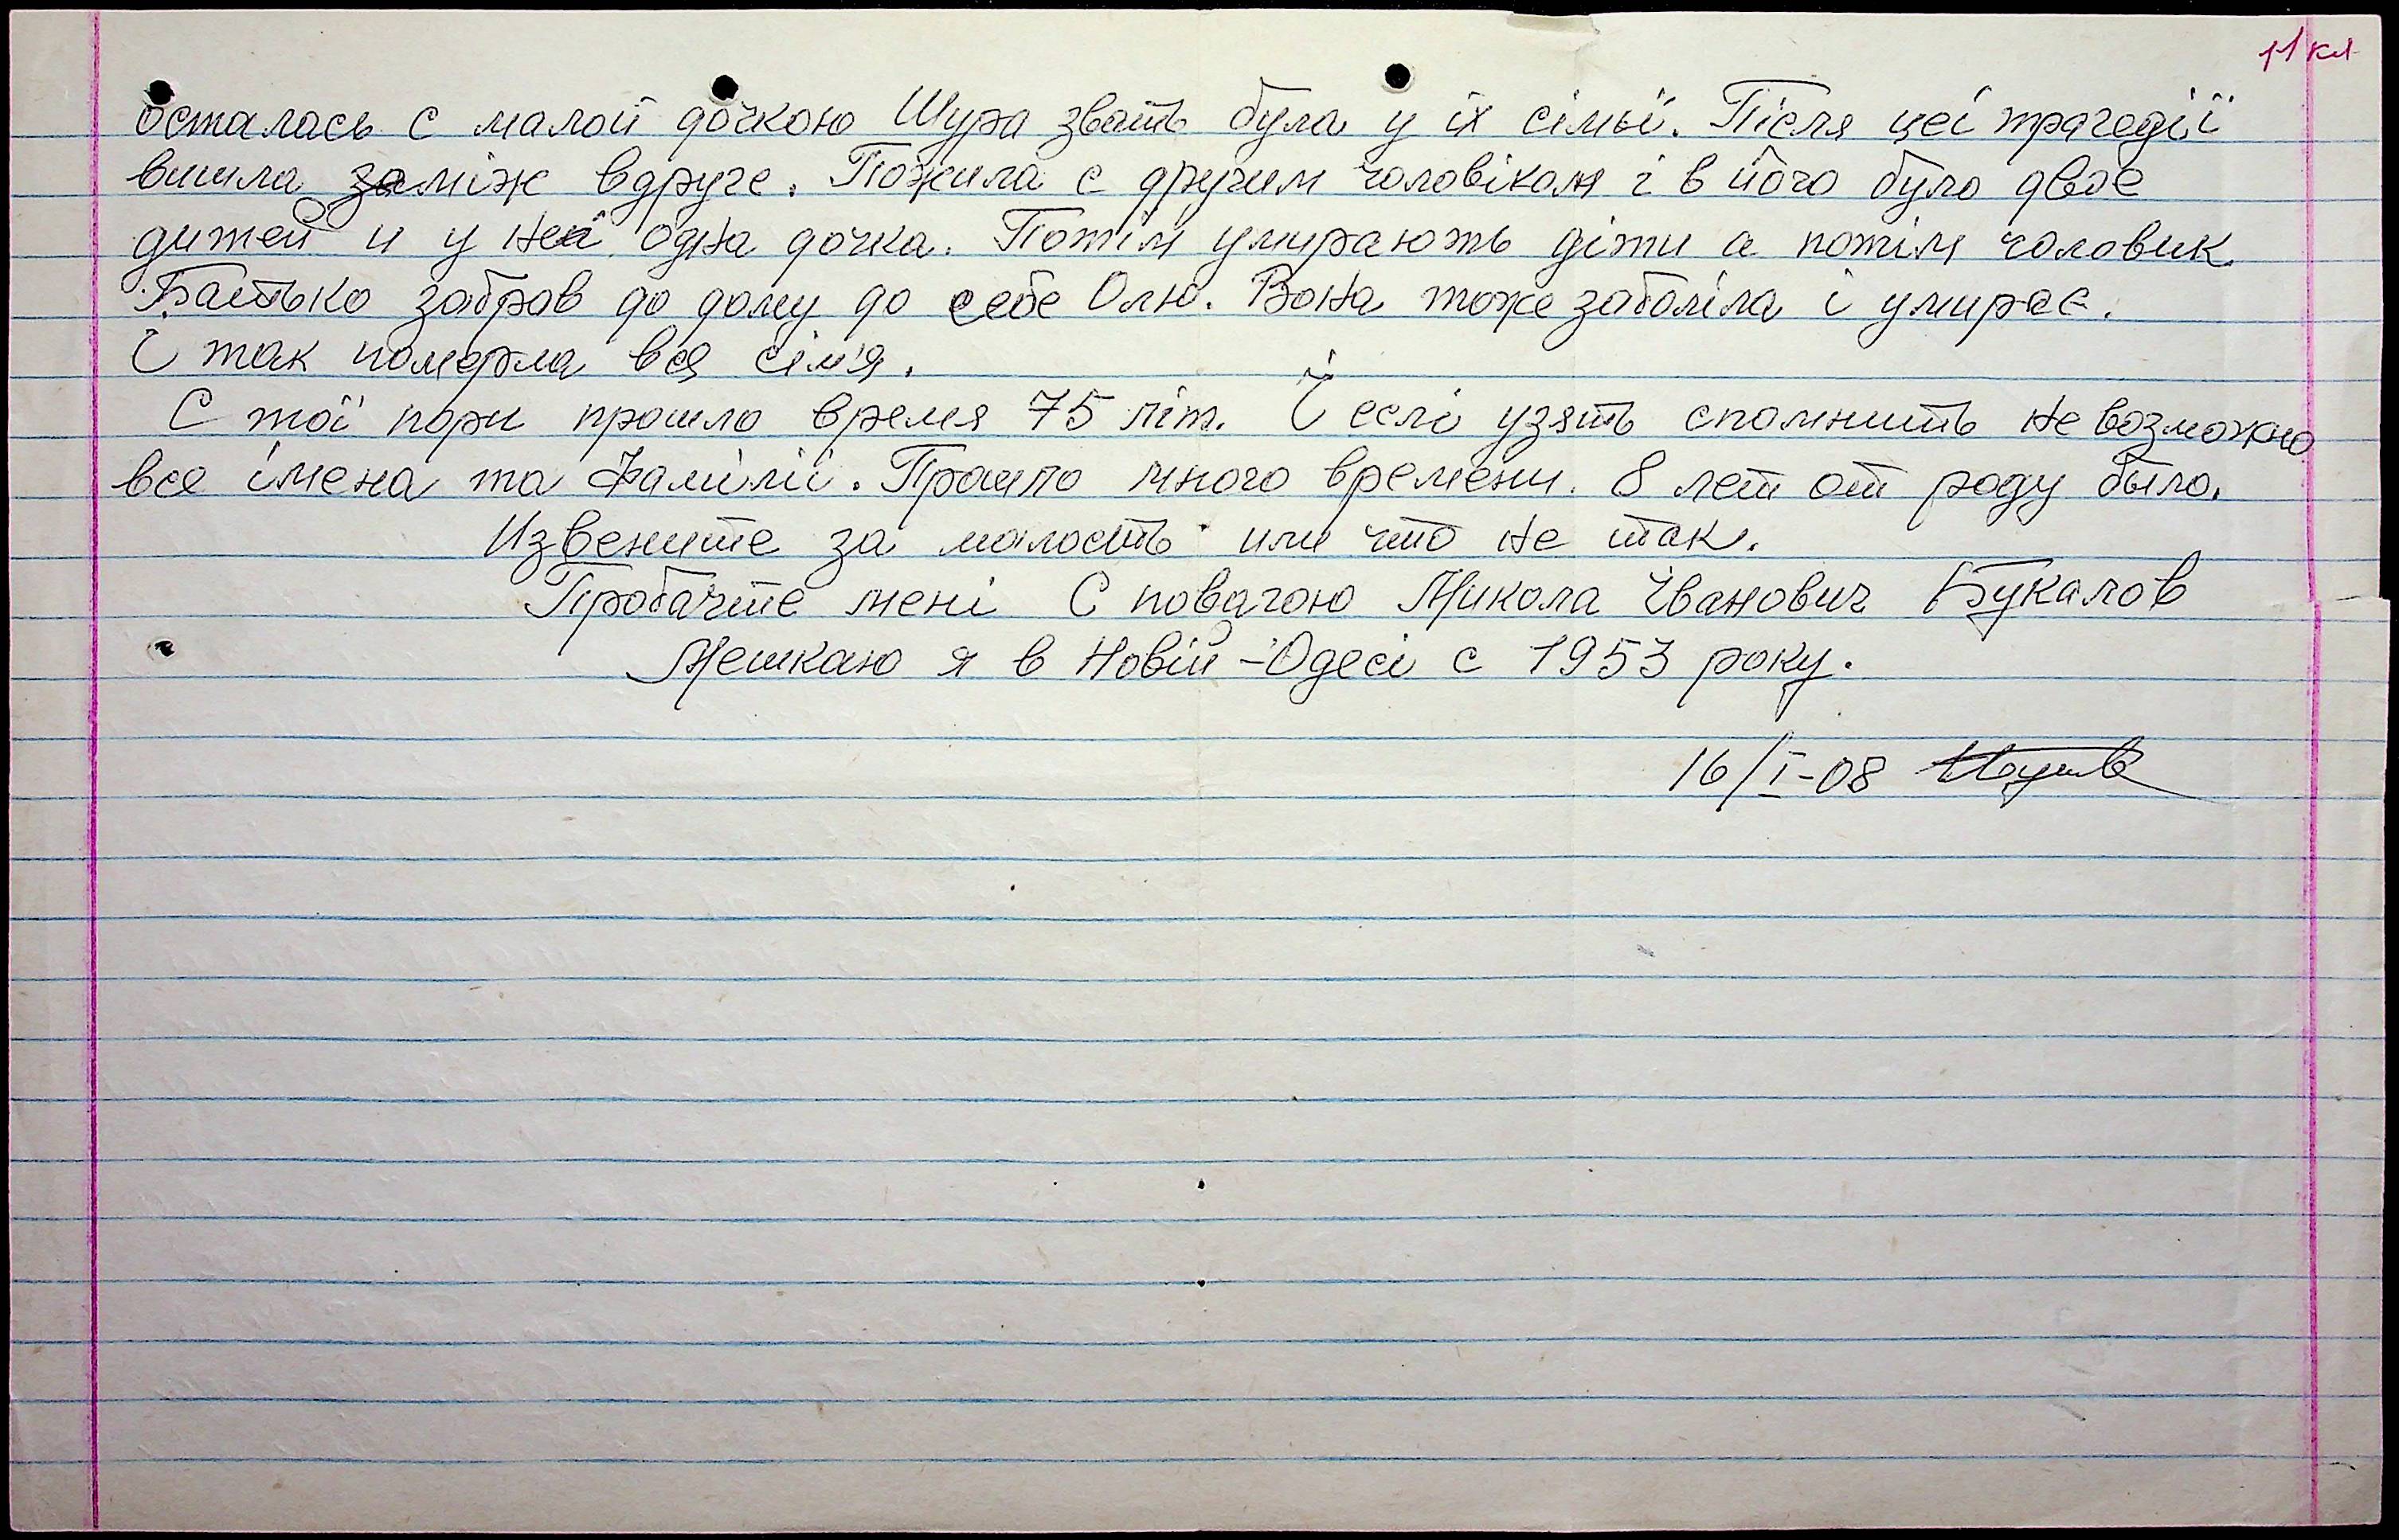 11 кл
осталась с малой дочкою Шура звать була у їх сімьї. Після цеї трагедії
вишла заміж вдруге. Пожила с другим чоловіком і в його було двое
дитей и у неї одна дочка. Потім умирають діти а потім чоловик
Батько забрав до дому до себе Олю. Вона тоже заболіла і умирає.
І так померла вся сім'я.
С тої пори прошло время 75 літ. І еслі узять спомнить не возможно
все імена та фамілії. Прошло много времени. 8 лет от роду было.
Извените за малость или что не так.
Пробачте мені С повагою Микола Іванович Букалов
Мешкаю я в Новій-Одесі с 1953 року.
16/I-08